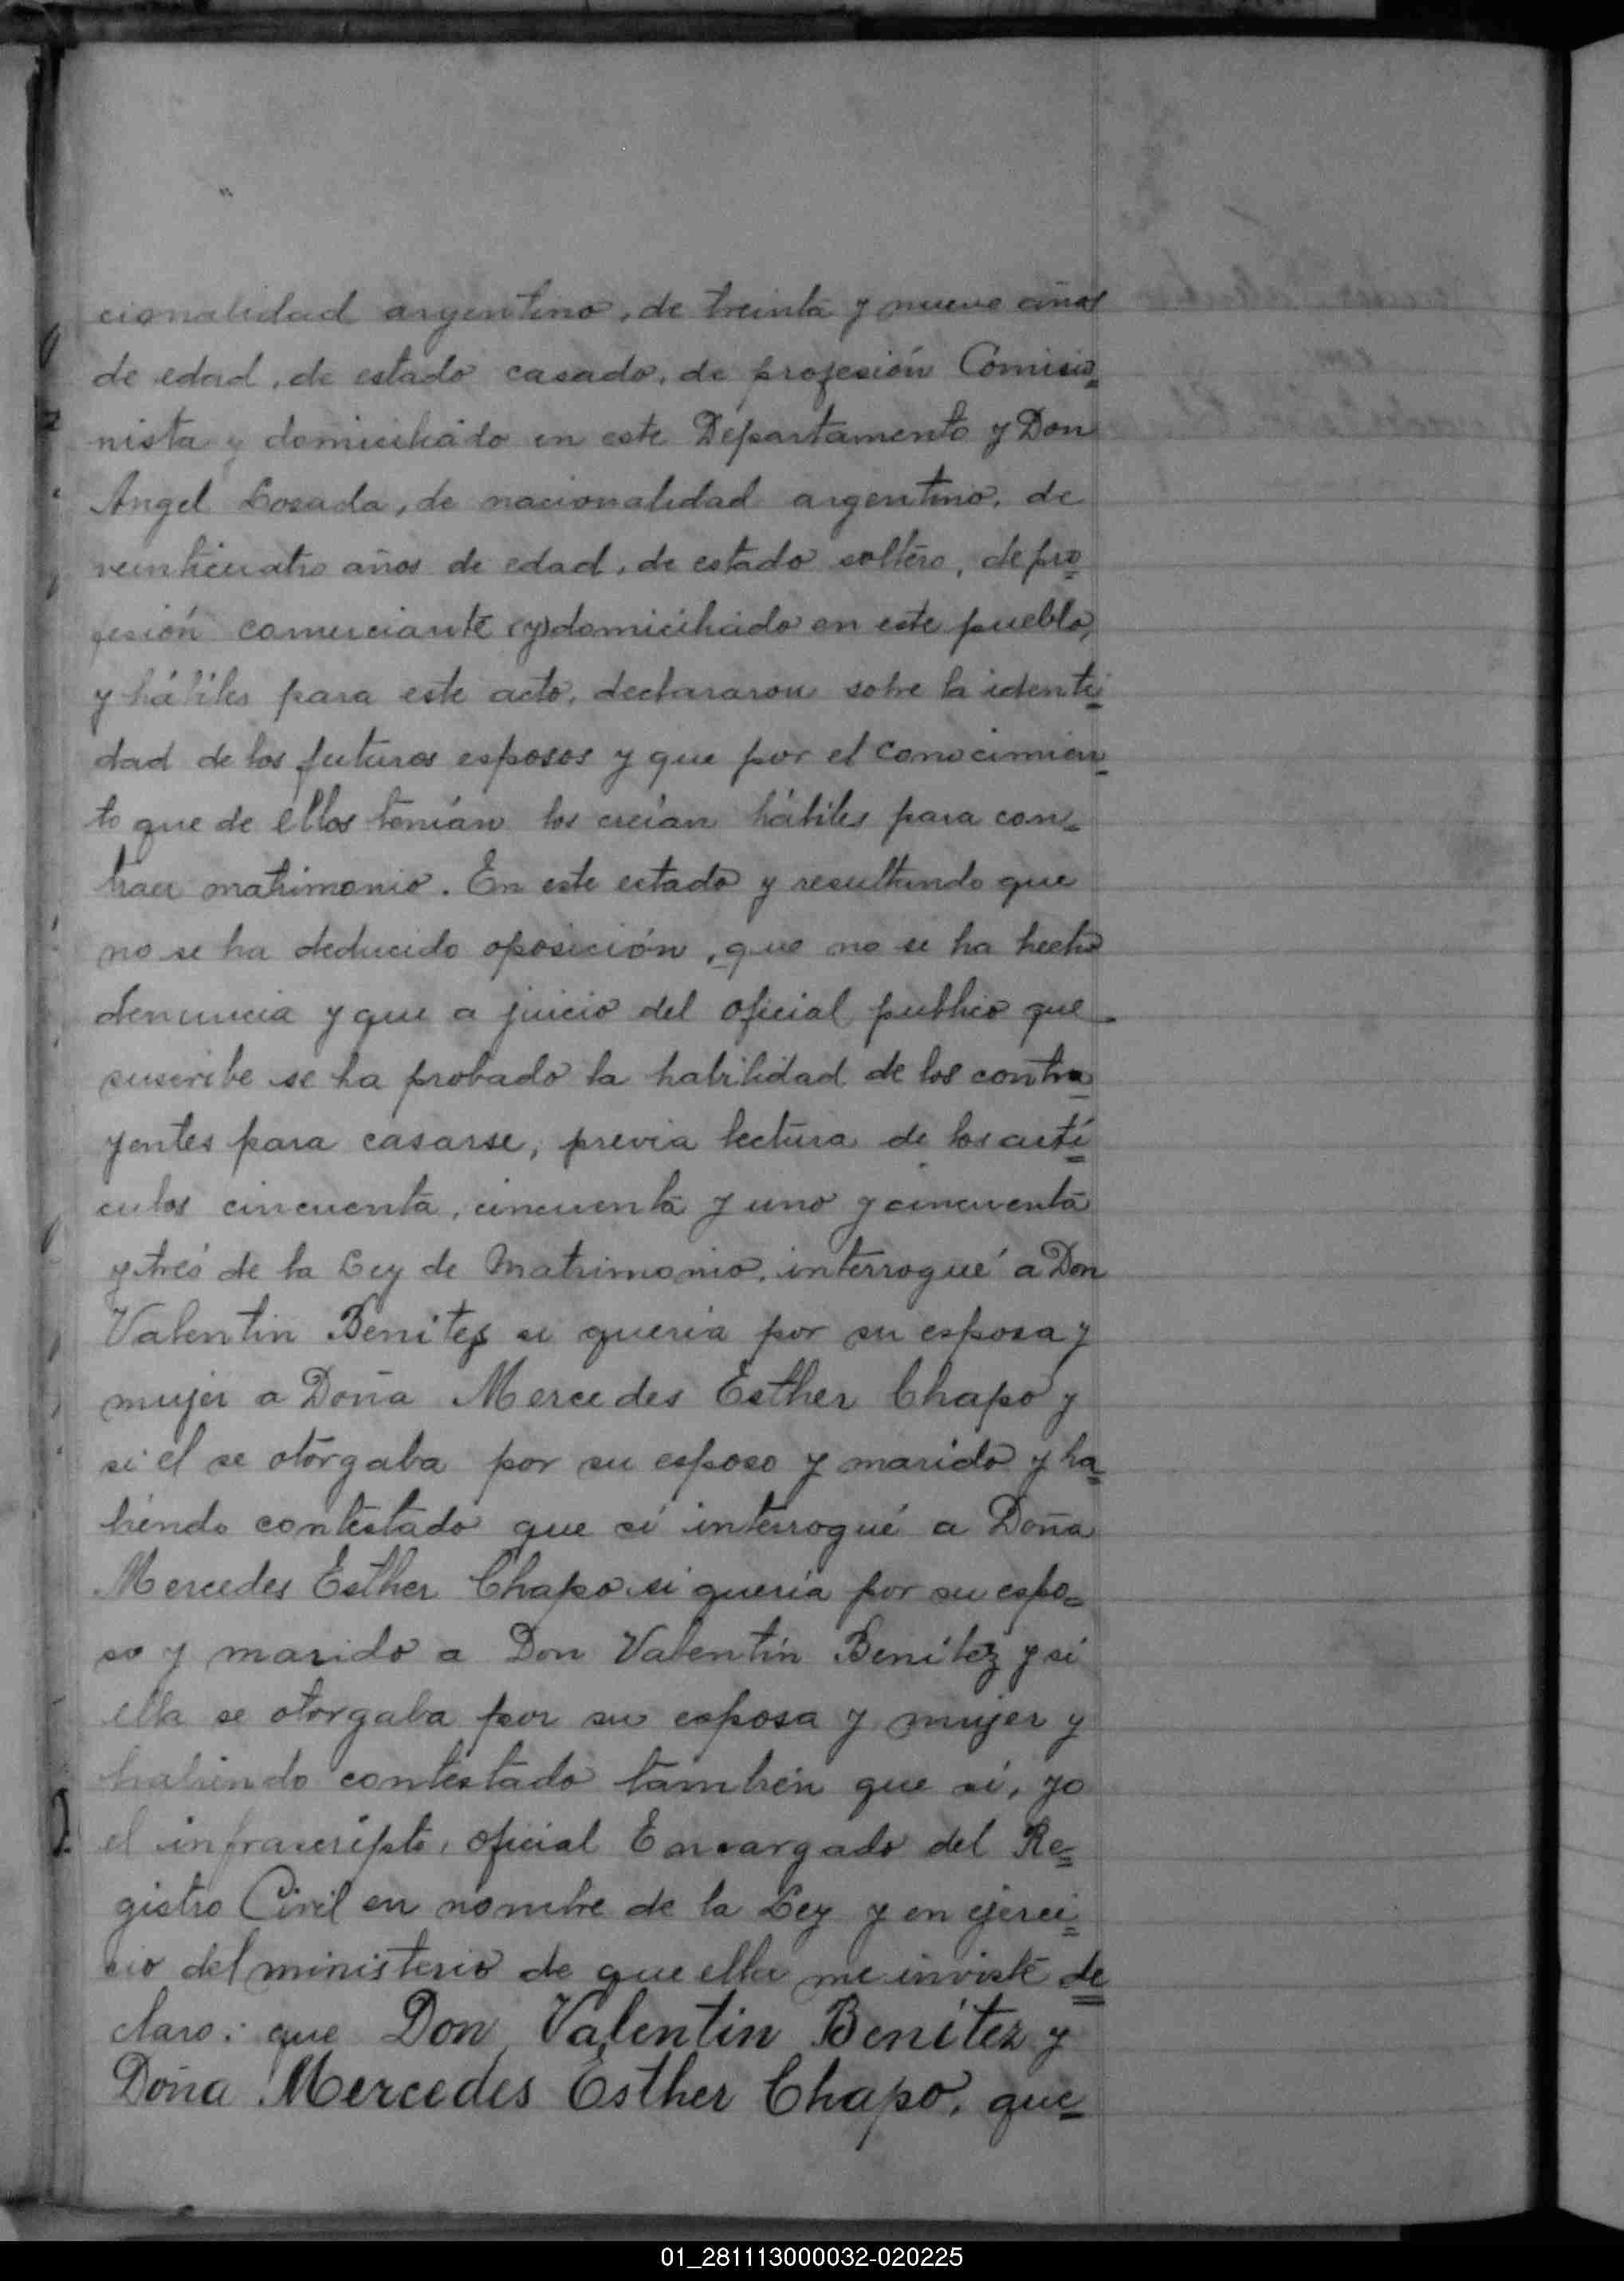 cionalidad argentino, de treinta y nueve años
de edad, de estado casado, de profesión Comisio=
nista y domiciliado en este Departamento y Don
Angel Losada, de nacionalidad argentino, de
veinticuatro años de edad, de estado soltero, de pro=
fesión comerciante (y) domiciliado en este pueblo,
y hábiles para este acto, declararon sobre la identi=
dad de los futuros esposos y que por el conocimien=
to que de ellos tenían los creían hábiles para con=
traer matrimonio. En este estado y resultando que
no se ha deducido oposición, que no se ha hecho
denuncia y que a juicio del oficial publico que
suscribe se ha probado la habilidad de los contra=
yentes para casarse, previa lectura de los artí=
culos cincuenta, cincuenta y uno y cincuenta
y trés de la Ley de Matrimonio, interrogué a Don
Valentin Benitez si queria por su esposa y
mujer a Doña Mercedes Esther Chapo y
si el se otorgaba por su esposo y marido y ha=
biendo contestado que sí interrogué a Doña
Mercedes Esther Chapo si quería por su espo=
so y marido a Don Valentín Benítez y si
ella se otorgaba por su esposa y mujer y
habiendo contestado también que sí, yo
el infrascripto, oficial Encargado del Re=
gistro Civil en nombre de la Ley y en ejerci=
cio del ministerio de que ella me inviste de=
claro: que Don Valentin Benítez y
Doña Mercedes Esther Chapo, que=
01_281113000032-020225